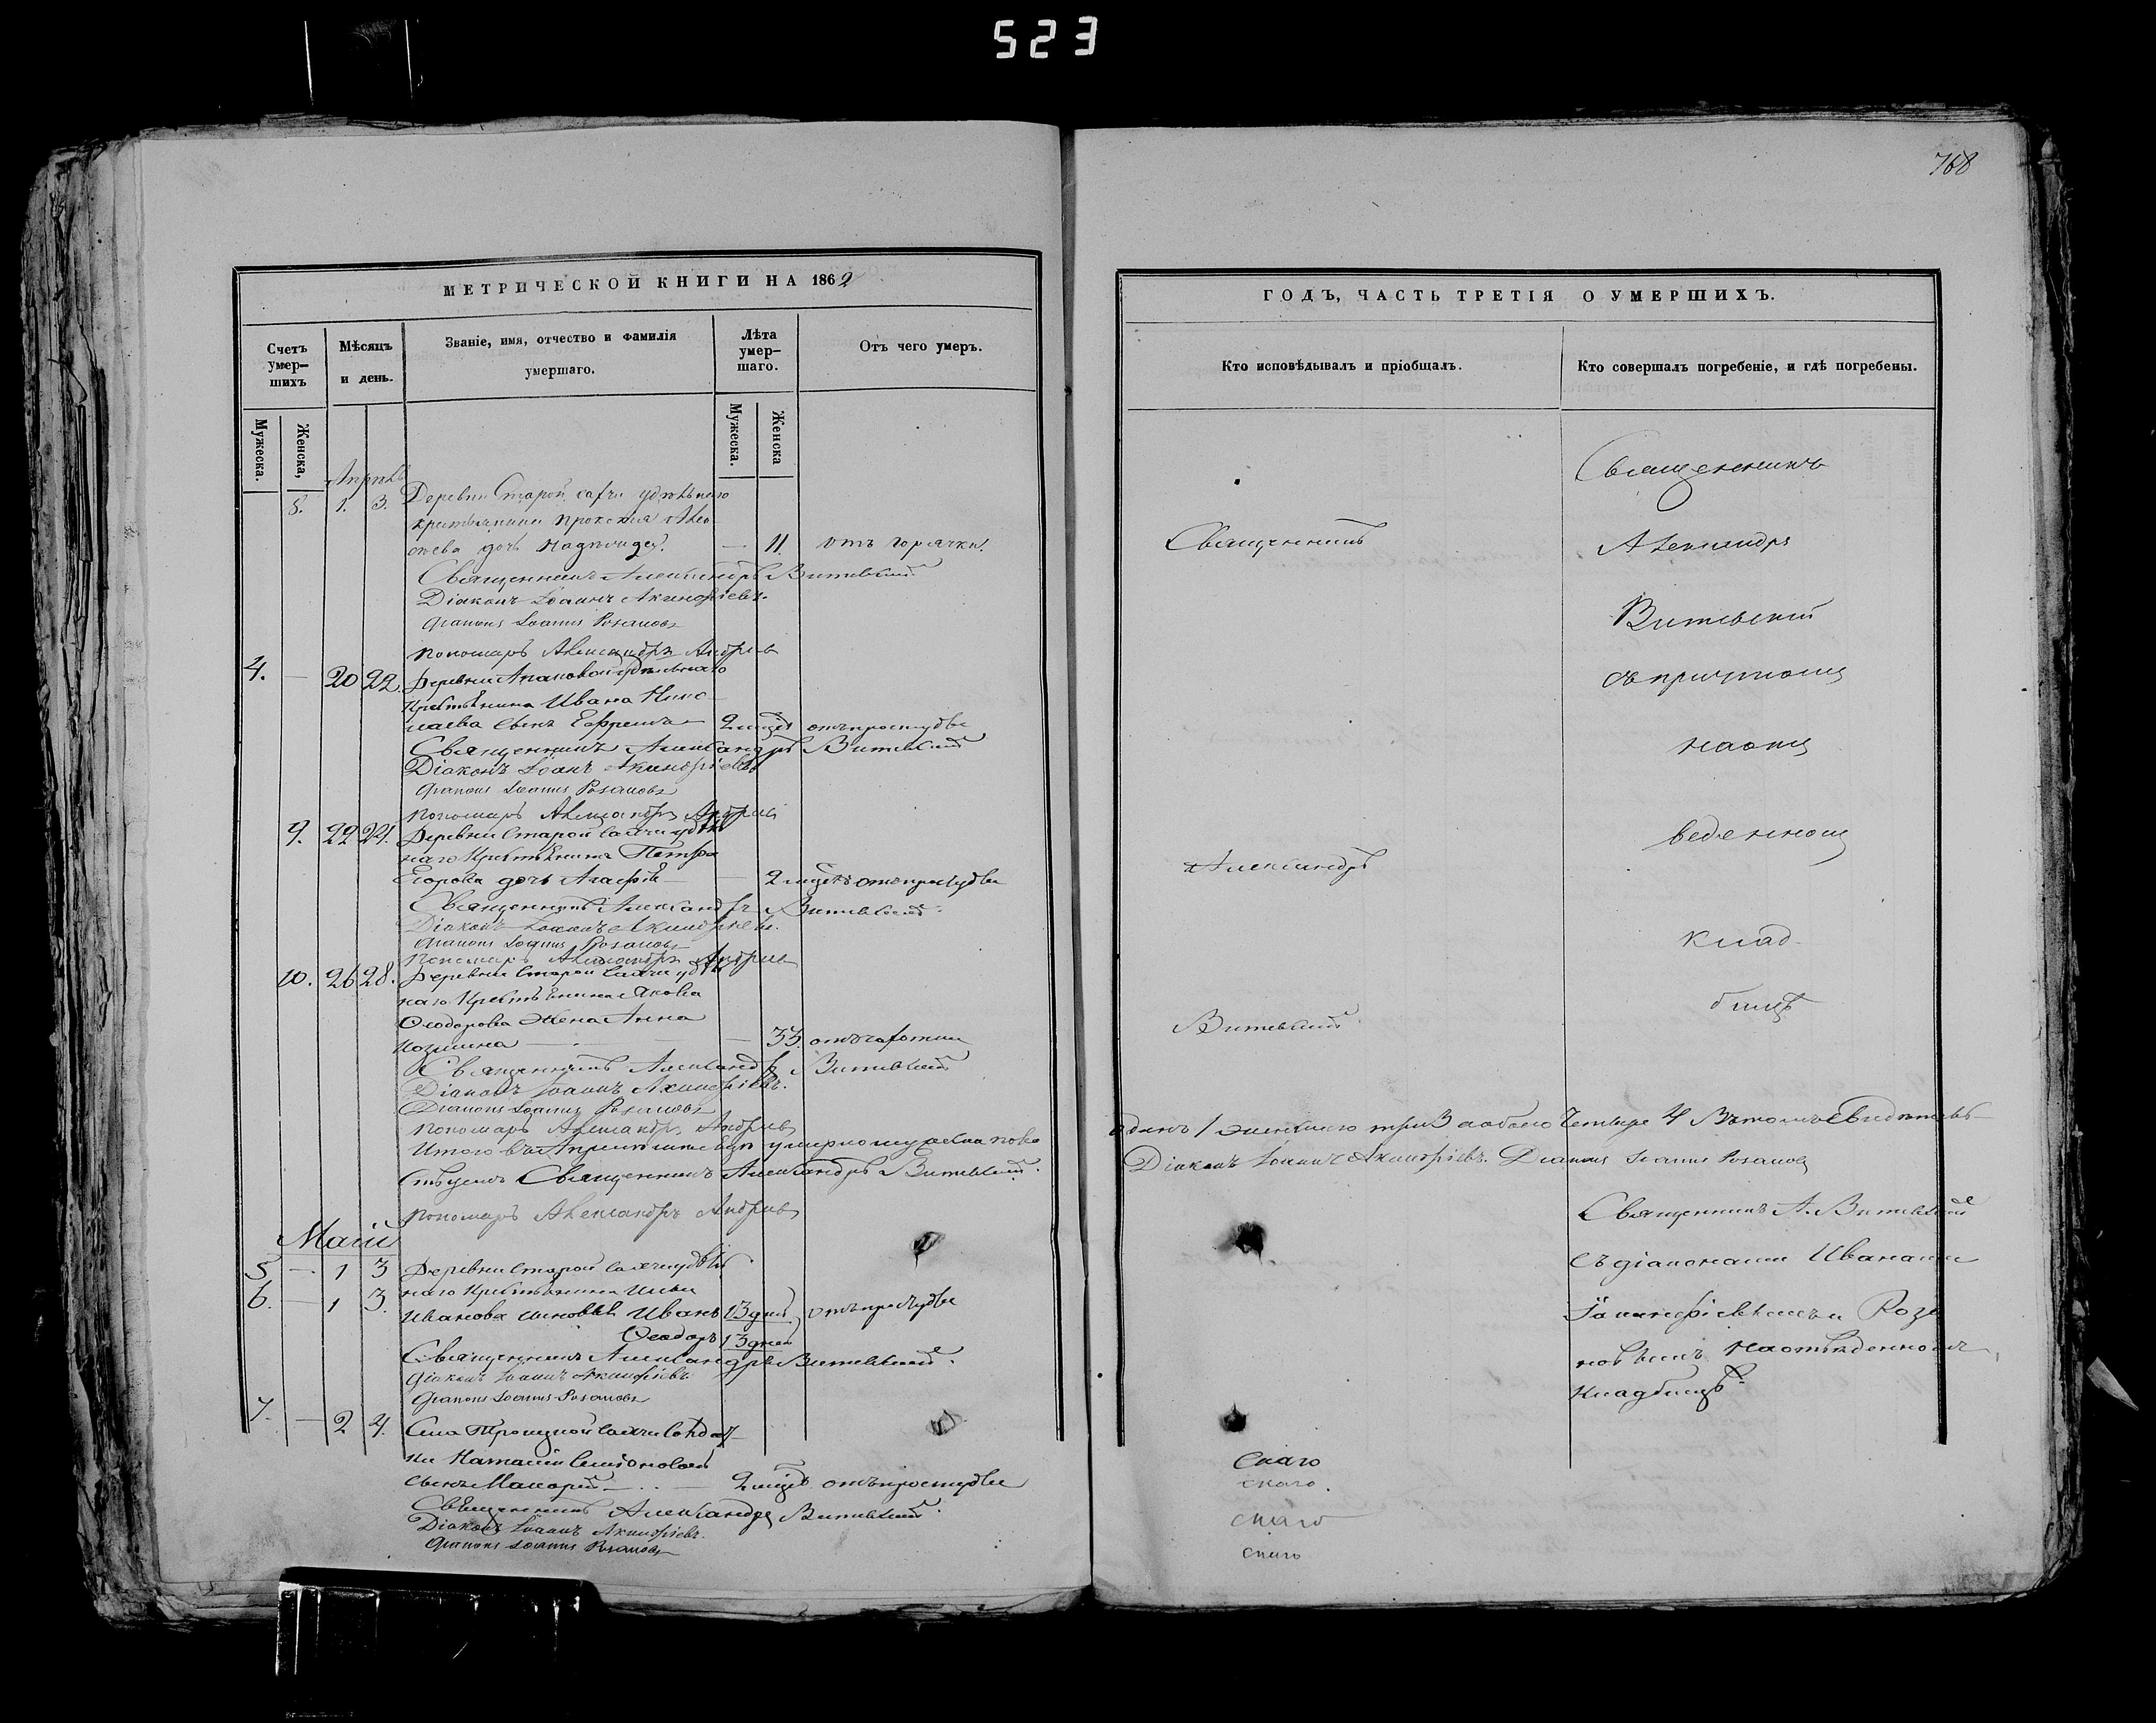 523
768
МЕТРИЧЕСКОЙ КНИГИ НА 1862
Счетъ умер-шихъ
Мѣсяцъ и день.
Званіе, имя, отчество и фамилія умершаго.
Лѣта умер-шаго.
Отъ чего умеръ.
Мужеска.
Женска,
Мужеска.
Женска
8. 1. 3. Деревни Старой
дочь 11. отъ горячки.
Священникъ Александръ Витевскій
Діаконъ Іоаннъ Акинфіевъ.
Діаконъ Іоаннъ Розановъ
Пономарь Александръ Андреевъ
4. — 20 22. Деревни удѣльнаго
Крестьянина Ивана Нико-
лаева сынъ Ефремъ — 2 мцвъ отъ простуды
Священникъ Александръ Витевскій
Діаконъ Іоаннъ Акинфіевъ
Діаконъ Іоаннъ Розановъ
Пономарь Александръ Андреевъ
9. 22 24. Деревни Старой удѣль
наго Крестьянина Петра
Егорова дочь Агафія — 2 мцвъ отъ простуды
Священникъ Александръ Витевскій
Діаконъ Іоаннъ Акинфіевъ.
Діаконъ Іоаннъ Розановъ
Пономарь Александръ Андреевъ
10. 26 28. Деревни Старой удѣль
наго Крестьянина Якова
Ѳеодорова жена Анна
— 33. отъ чахотки
Священникъ Александръ Витевскій
Діаконъ Іоаннъ Акинфіевъ.
Діаконъ Іоаннъ Розановъ
Пономарь Александръ Андреевъ
Итого въ Апрѣлѣ мѣсяцѣ умерло мужеска пола
Священникъ Александръ Витевскій.
Пономарь Александръ Андреевъ
Маій
5 — 1 3 Деревни Старой удѣль
6. — 1 3. наго Крестьянина
Иванова сыновья Иванъ 13 дней, отъ простуды
Ѳеодоръ 13 дней
Священникъ Александръ Витевскій.
Діаконъ Іоаннъ Акинфіевъ
Діаконъ Іоаннъ Розановъ
7. — 2 4. Села Троицкой Солдат
ки Наталіи Семіоновой
сынъ Макарій — 2 мцвъ отъ простуды
Священникъ Александръ Витевскій.
Діаконъ Іоаннъ Акинфіевъ.
Діаконъ Іоаннъ Розановъ
ГОДЪ, ЧАСТЬ ТРЕТІЯ О УМЕРШИХЪ.
Кто исповѣдывалъ и пріобщалъ.
Кто совершалъ погребеніе, и гдѣ погребены.
Священникъ
Священникъ
Александръ
Витевскій
съ причтомъ
на отъ
Александръ
веденномъ
клад-
Витевскій
бищѣ
одинъ 1 женскаго три 3 а обоего четыре 4 Въ томъ свидѣтель-
Діаконъ Іоаннъ Акинфіевъ. Діаконъ Іоаннъ Розановъ
Священникъ А. Витевскій
съ діаконами Иванами
Акинфіевымъ и Роза
новымъ на отведенномъ
кладбищѣ.
скаго
скаго.
скаго
скаго